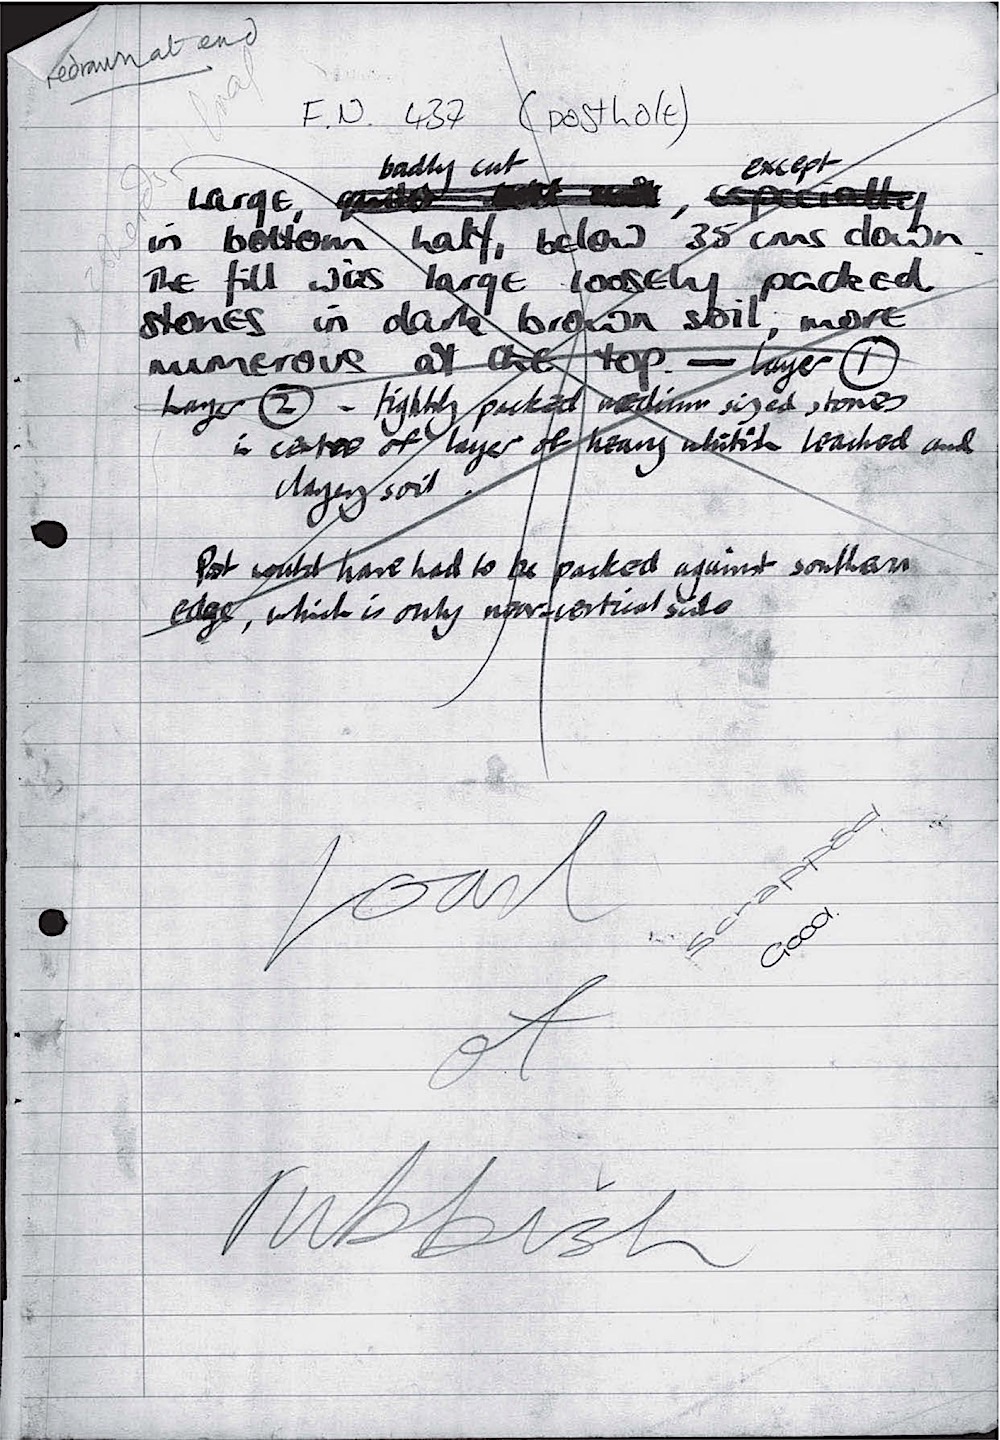 redrawn at end
F.N. 437 (posthole)
badly cut except
Large, , especially
in bottom half, below 35 cms down
The fill was large loosely packed
stones in dark brown soil, more
numerous at the top. — layer ①
Layer ② - tightly packed medium sized stones
in centre of layer of heavy whitish leached and
clayey soil.
Post would have had to be packed against southern
edge, which is only near-vertical side
load
of
rubbish
scrapped
Good.